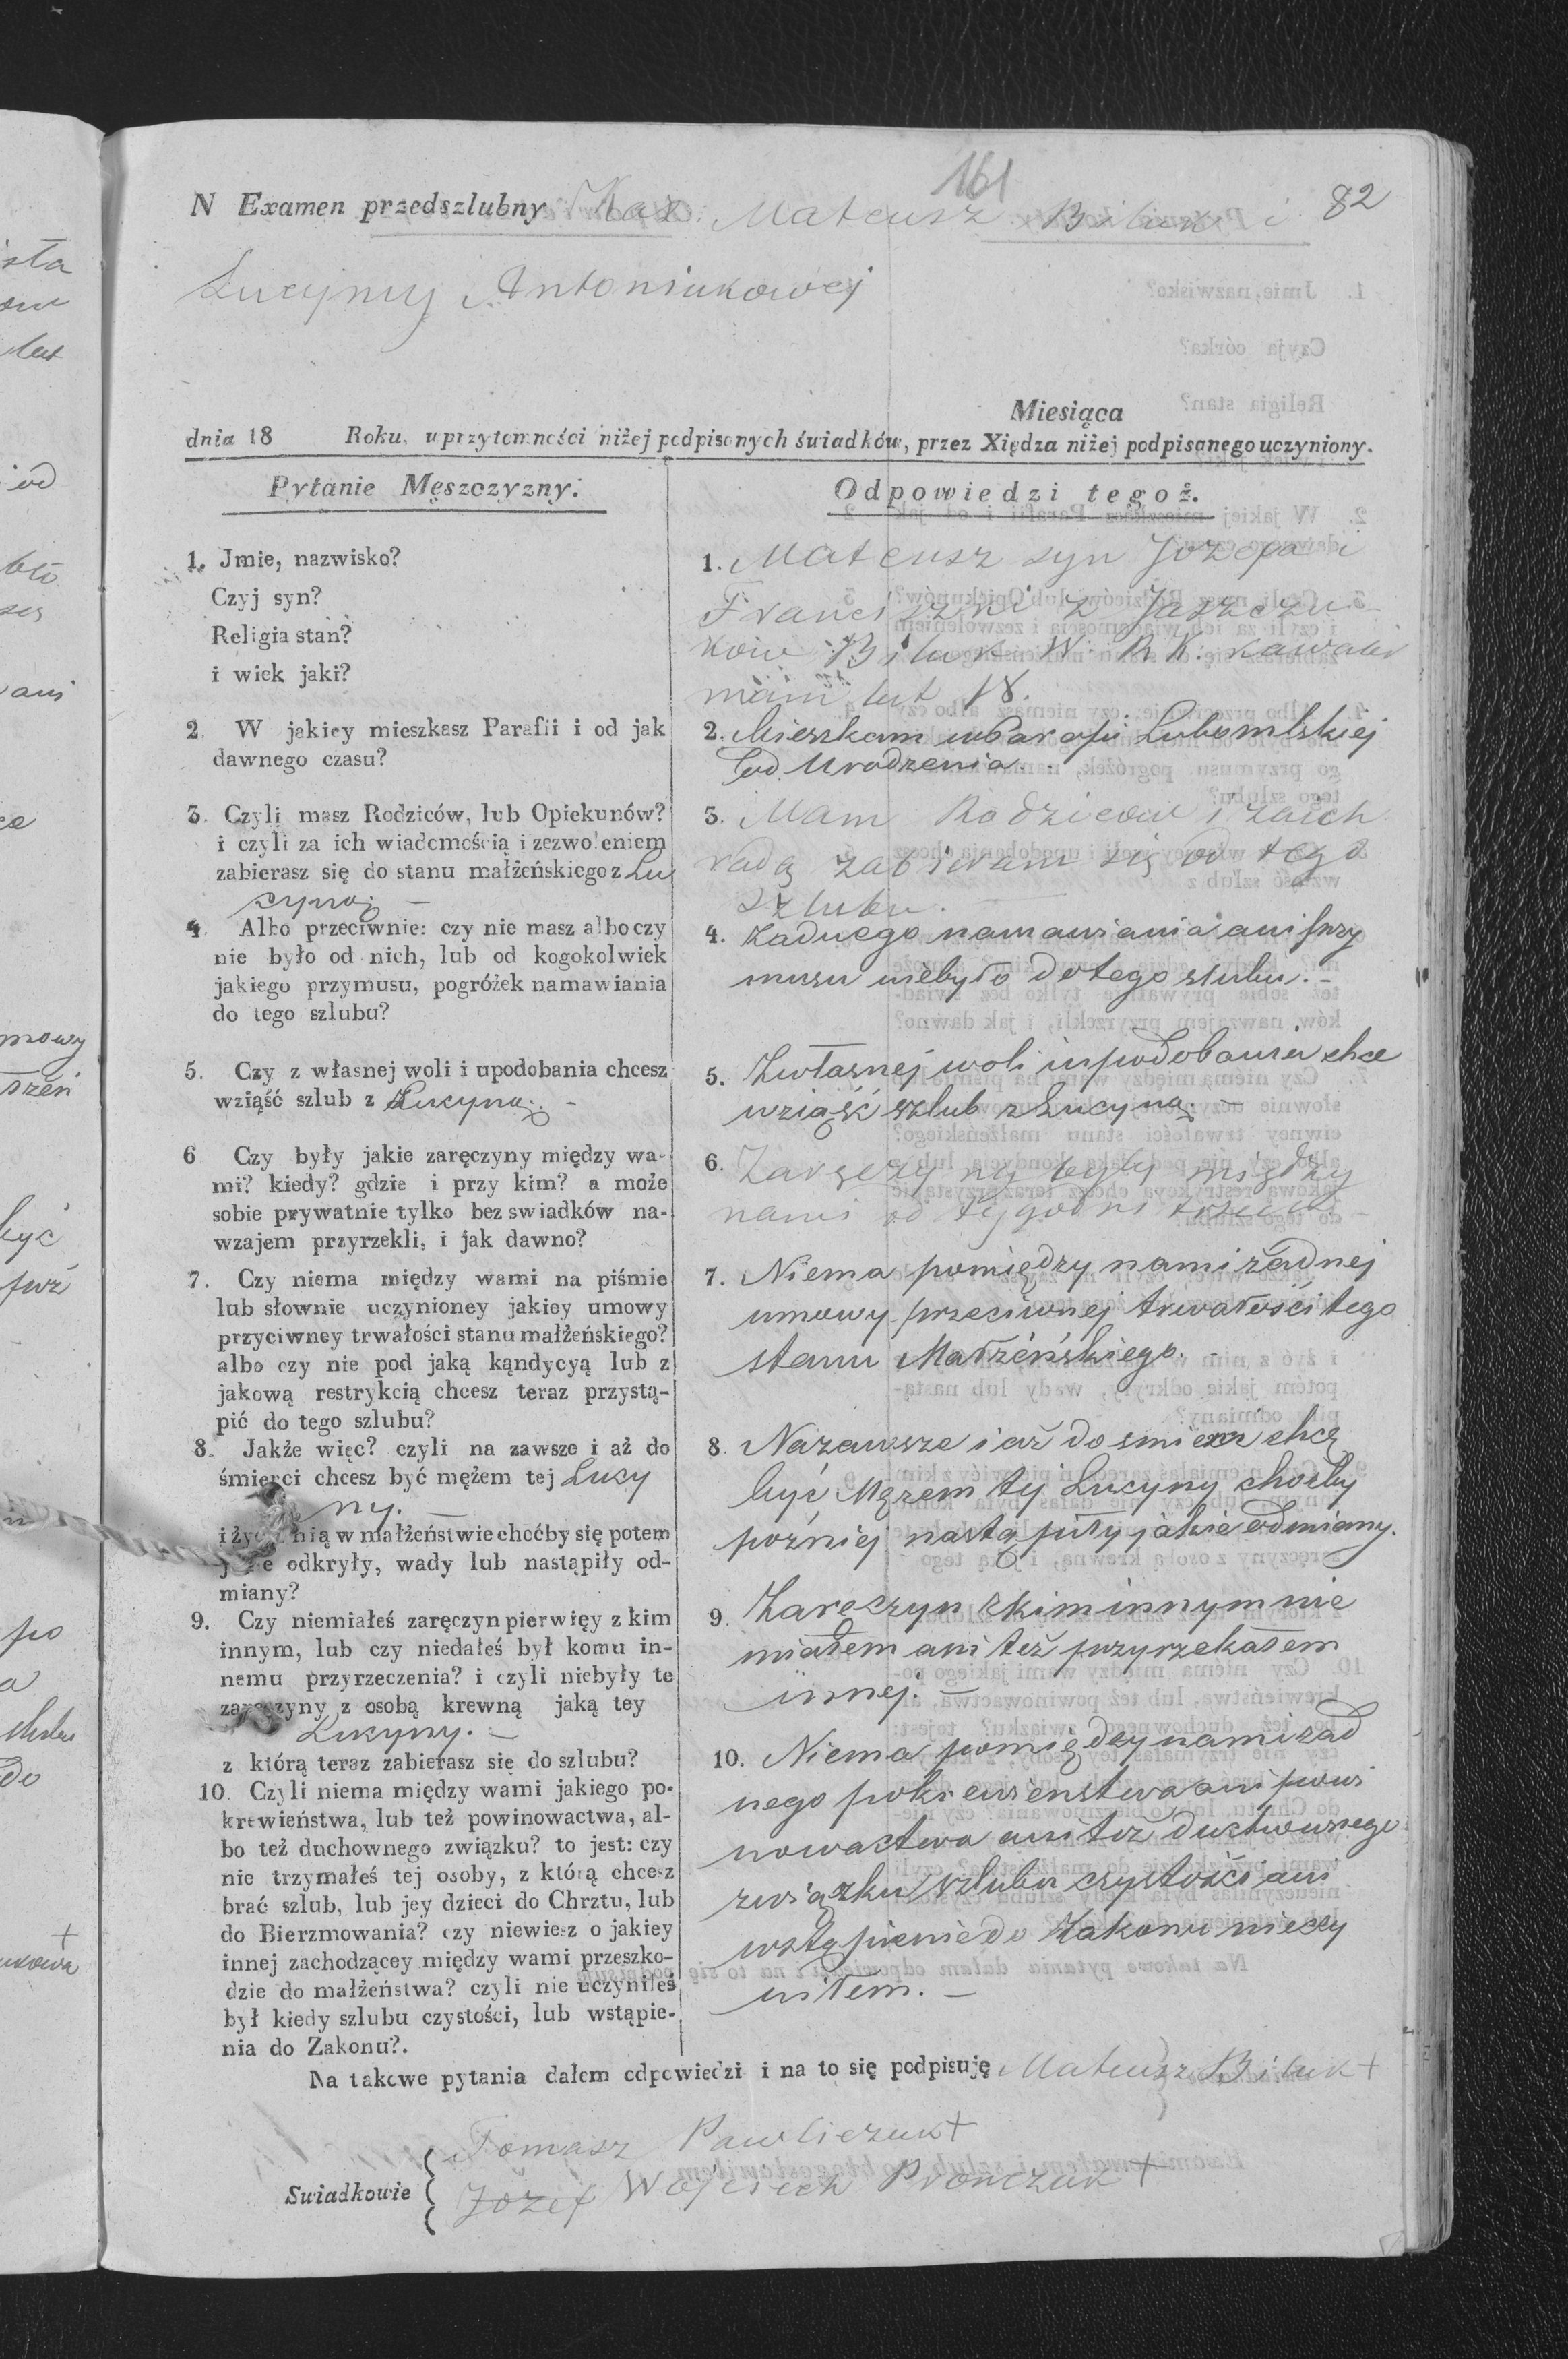 161
N Examen przedszlubny Kaz: Mateusz Biluk i 82
Lucyny Antoniukowej
Miesiąca
dnia 18 Roku, w przytomności niżej podpisanych świadków, przez Xiędza niżej podpisanego uczyniony.
Pytanie Męszczyzny.
Odpowiedzi tegoż.
1. Jmie, nazwisko?
Czyj syn?
Religia stan?
i wiek jaki?
1. Mateusz syn Jozefa i
Franciszki z Jaszczu
kow Biluk W. R. K. kawaler
mam lat 18.
2. W jakiey mieszkasz Parafii i od jak
dawnego czasu?
2. Mieszkam w Parafii Lubomlskiej
od Urodzenia.
3. Czyli masz Rodziców, lub Opiekunów?
i czyli za ich wiadomością i zezwoleniem
zabierasz się do stanu małżeńskiego z Lu
cyną –
3. Mam Rodzicow i za ich
radą zabieram się do tego
szlubu. –
4. Albo przeciwnie: czy nie masz albo czy
nie było od nich, lub od kogokolwiek
jakiego przymusu, pogróżek namawiania
do tego szlubu?
4. Żadnego namawiania ani przy
musu niebyło do tego szlubu. –
5. Czy z własnej woli i upodobania chcesz
wziąść szlub z Lucyną. –
5. Z własnej woli i upodobania chce
wziąść szlub z Lucyną. –
6 Czy były jakie zaręczyny między wa-
mi? kiedy? gdzie i przy kim? a może
sobie prywatnie tylko bez swiadków na-
wzajem przyrzekli, i jak dawno?
6. Zaręczyny były między
nami od tygodni trzech –
7. Czy niema między wami na piśmie
lub słownie uczynioney jakiey umowy
przyciwney trwałości stanu małżeńskiego?
albo czy nie pod jaką kąndycyą lub z
jakową restrykcią chcesz teraz przystą-
pić do tego szlubu?
7. Niema pomiędzy nami żadnej
umowy przeciwnej trwałości tego
stanu Małżeńskiego. –
8. Jakże więc? czyli na zawsze i aż do
śmierci chcesz być mężem tej Lucy
ny.
i ży nią w małżeństwie choćby się potem
odkryły, wady lub nastąpiły od-
miany?
8. Nazawsze i aż do smierci chcę
być Mężem tej Lucyny choćby
poźniej nastąpiły jakie odmiany.
9. Czy niemiałeś zaręczyn pierwięy z kim
innym, lub czy niedałeś był komu in-
nemu przyrzeczenia? i czyli niebyły te
zaręczyny z osobą krewną jaką tey
Lucyny. –
z którą teraz zabierasz się do szlubu?
9. Zareczyn z kim innym nie
miałem ani też przyrzekałem
innej. –
10. Czyli niema między wami jakiego po-
krewieństwa, lub też powinowactwa, al-
bo też duchownego związku? to jest: czy
nie trzymałeś tej osoby, z którą chcesz
brać szlub, lub jey dzieci do Chrztu, lub
do Bierzmowania? czy niewiesz o jakiey
innej zachodzącey między wami przeszko-
dzie do małżeństwa? czyli nie uczyniłeś
był kiedy szlubu czystości, lub wstąpie-
nia do Zakonu?.
10. Niema pomiędzy nami żad
nego pokrewieństwa ani powi
nowactwa ani też duchownego
związku szlubu czystości ani
wstąpienie do Zakonu nieczy
niłem. –
Na takowe pytania dałem odpowiedzi i na to się podpisuję Mateusz Biluk +
Swiadkowie
Tomasz Pawliczuk +
Józef Wojciech Prończuk +